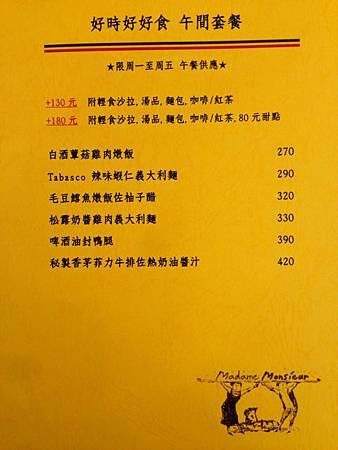 好時好好食 午間套餐
★限周一至周五 午餐供應★
+130元 附輕食沙拉,湯品,麵包,咖啡/紅茶
+180元 附輕食沙拉,湯品,麵包,咖啡/紅茶,80元甜點
白酒蕈菇雞肉燉飯 270
Tabasco 辣味蝦仁義大利麵 290
毛豆鱈魚燉飯佐柚子醋 320
松露奶醬雞肉義大利麵 330
啤酒油封鴨腿 390
秘製香茅菲力牛排佐熱奶油醬汁 420
Madame Monsieur